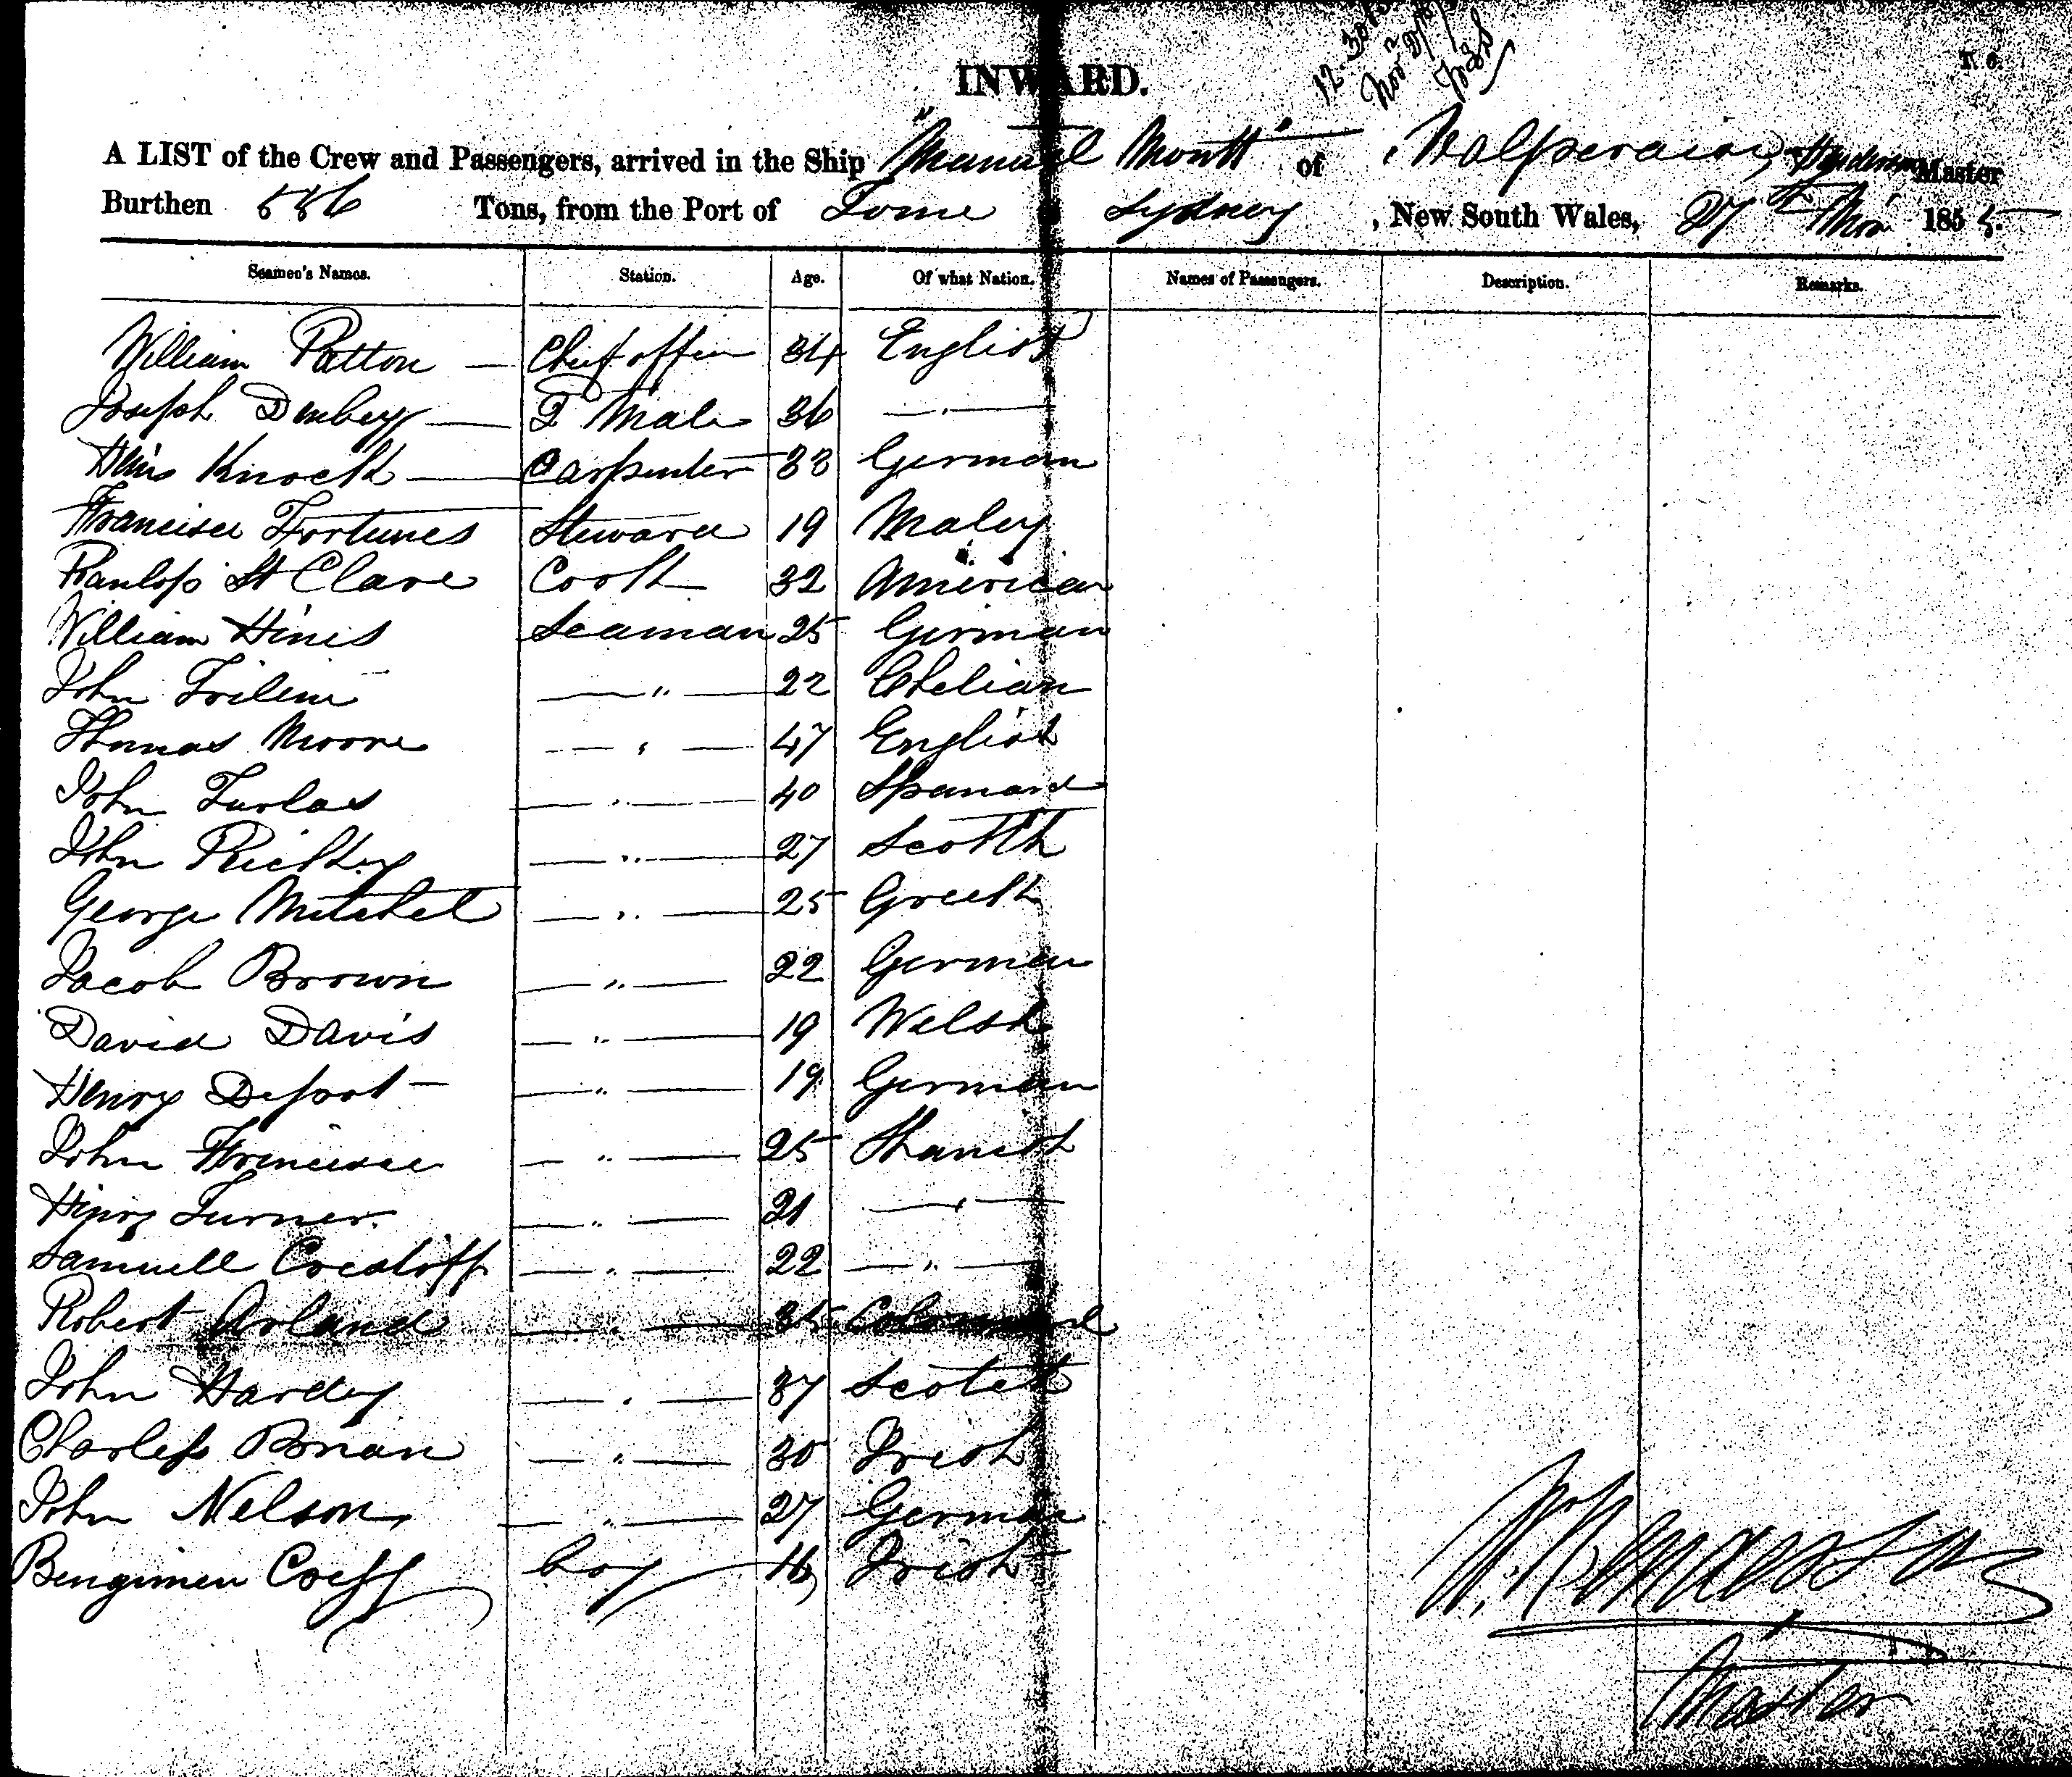 INWARD.
12.30
Nov 27
A LIST of the Crew and Passengers, arrived in the Ship "Manuel Montt" of Valperaiso, Henderson Master
Burthen 586 Tons, from the Port of Tome Sydney, New South Wales, 27th Nov 1855.
Seamen's Names. Station. Age. Of what Nation. Names of Passengers. Description. Remarks.
William Patton — Chief officer 34 English
Joseph Denbey — 2 Mate 36 — . —
Knock — Carpenter 33 German
Francisca Fortunes Steward 19 Maley
St Clare Cook 32 American
William Hines Seaman 25 German
John — " — 22 Chelian
Thomas Moore — " — 47 English
John — " — 40 Spanard
John — " — 27 Scotth
George Mitchel — " — 25 Greek
Jacob Brown — " — 22 German
David Davis — " — 19 Welsh
Henry — " — 19 German
John Francisca — " — 25
Henry Turner. — " — 21 — " —
Samuell — " — 22 — " —
Robert Orland — " — 35
John Hardey — " — 37 Scotch
Charless — " — 30 Irish
John Nelson — " — 27 German
Bengimen boy 16 Irish
Master